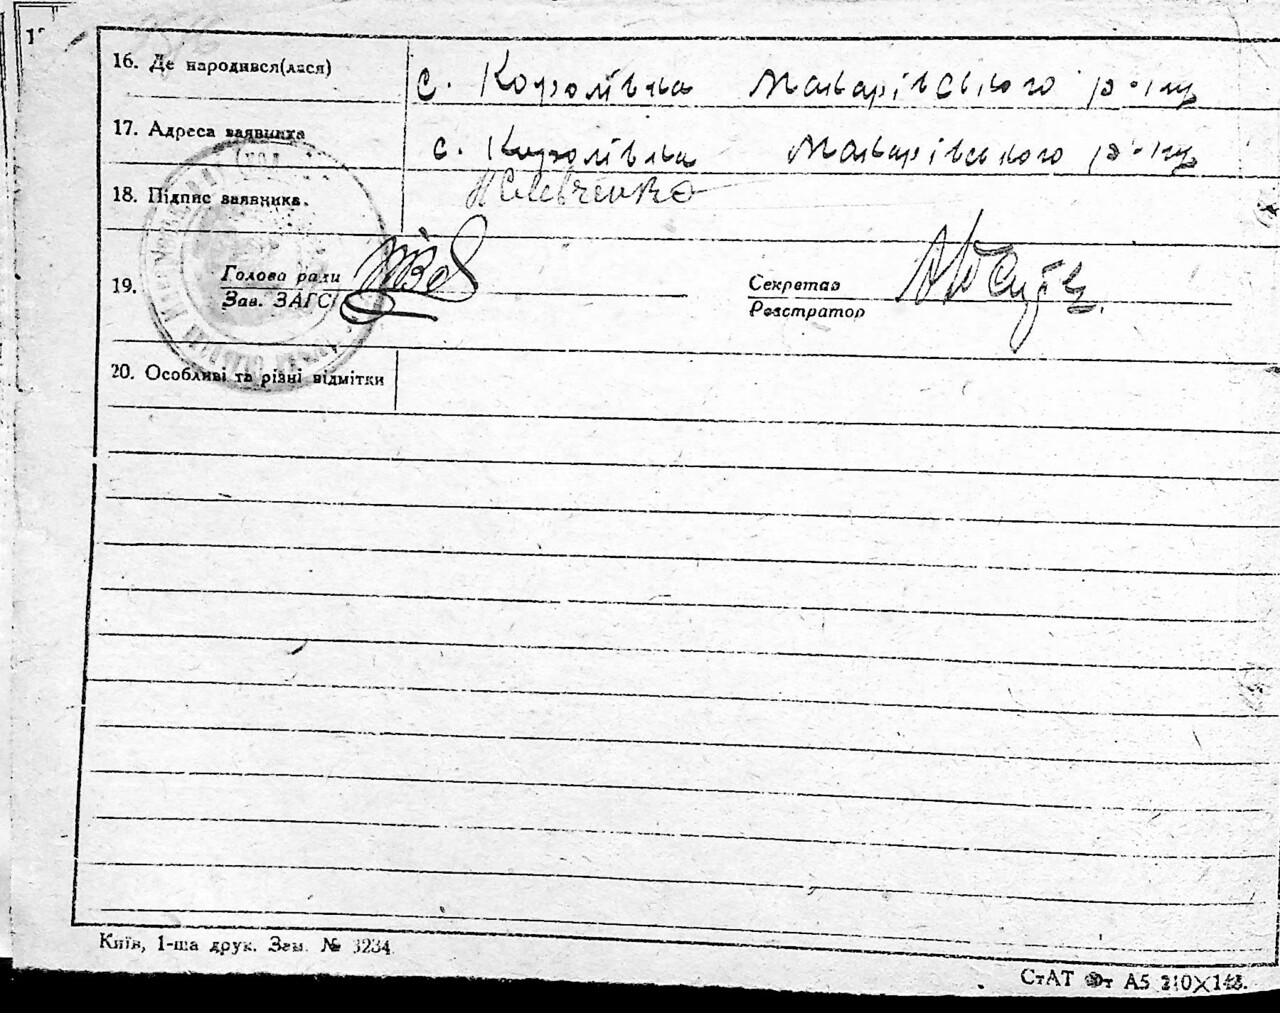 16. Де народився(лася) с. Королівка Макарівського р-ну
17. Адреса заявника с. Королівка Макарівського р-ну
18. Підпис заявника.
19. Голова ради Секретар
Зав. ЗАГС Реєстратор
20. Особливі та різні відмітки
Київ, 1-ша друк. Зам. № 3234.
СтАТ Фт А5 210×148.